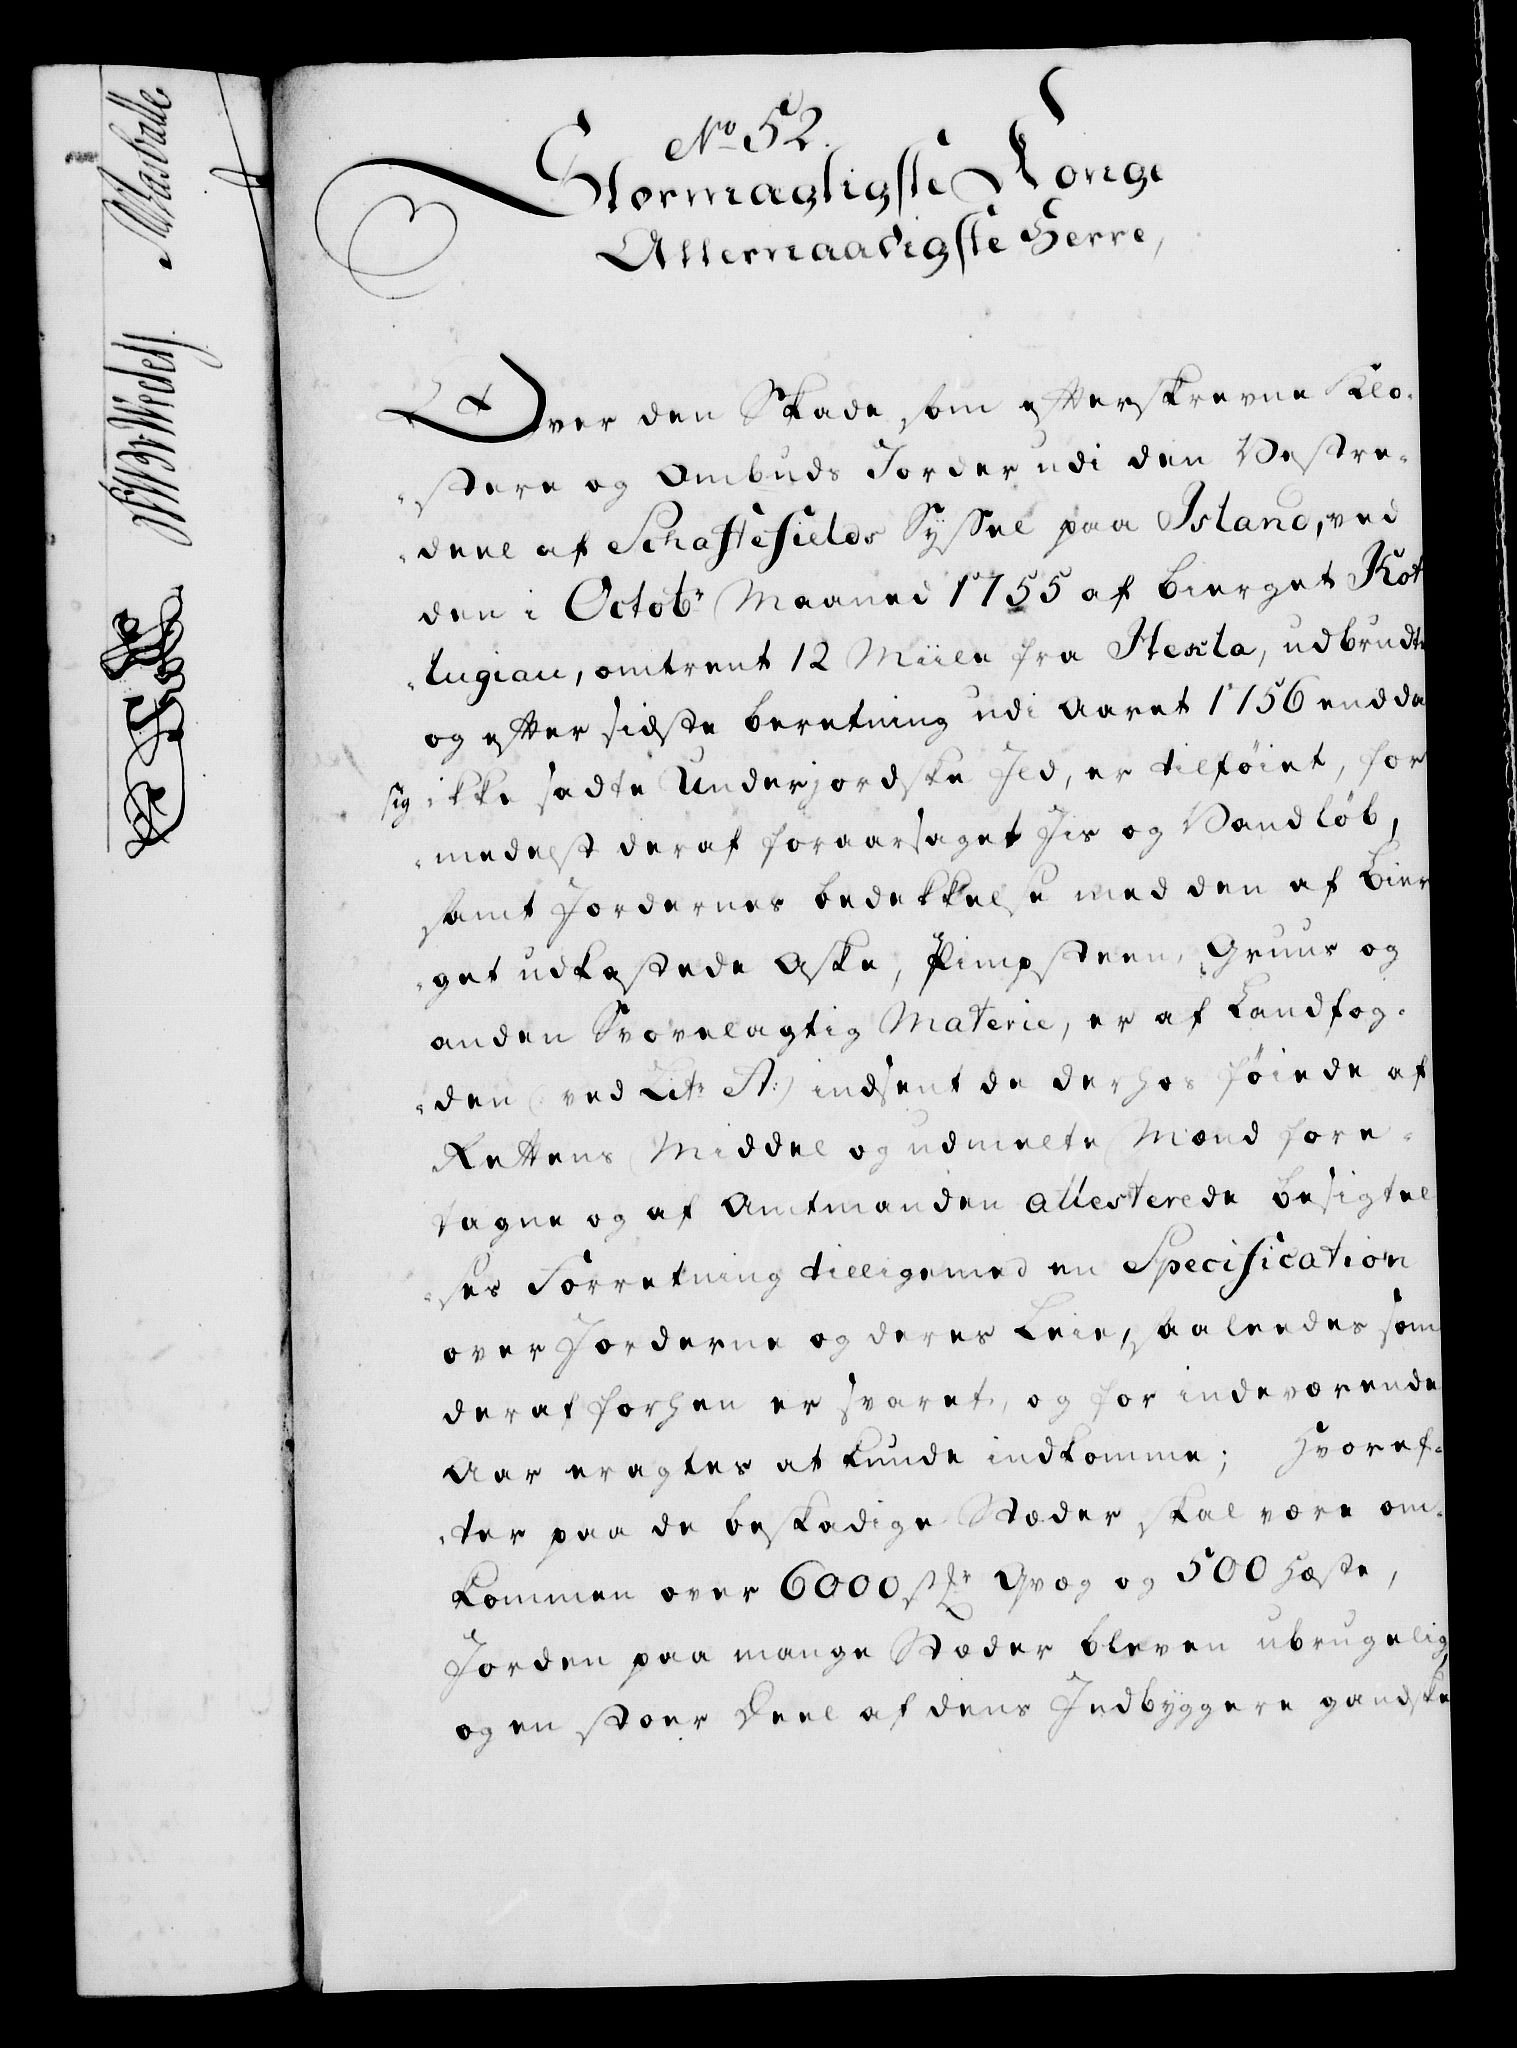 No 52.
Stormægtigste Konge
Allernaadigste Herre,
Over den Skade som efterskrevne Klo-
stere og Ombuds Jorder udi den Vestre-
deel af Schaftefields Syssel paa Island, ved
den i Octobr Maaned 1755 af Bierget Kot
lugiau, omtrent 12 Miile fra Hekla, udbrudte
og efter sidste beretning udi Aaret 1756 endda
sig ikke sadte Underjordske Ild, er tilføiet, for
medelst deraf foraarsaget Jis og Vandløb,
samt Jordernes bedekkelse med den af Bier
get udkastede Aske, Pimpsteen, Gruus og
anden Svovelagtig Materie, er af Landfog-
den (: ved Litr A:) indsent de derhos føiede af
Rettens Middel og udmelte Mænd fore-
tagne og af Amtmanden attesterede besigtel
ses Forretning tilligemed en Specification
over Jorderne og deres Leie, saaledes som
deraf forhen er svaret, og for indeværende
Aar eragtes at kunde indkomme; Hvoref-
ter paa de beskadige Stæder skal være om-
kommen over 6000 stkr Qvæg og 500 Hæste,
Jorden paa mange Stæder bleven ubrugelig,
og en stoer Deel af dens Indbyggere gandske